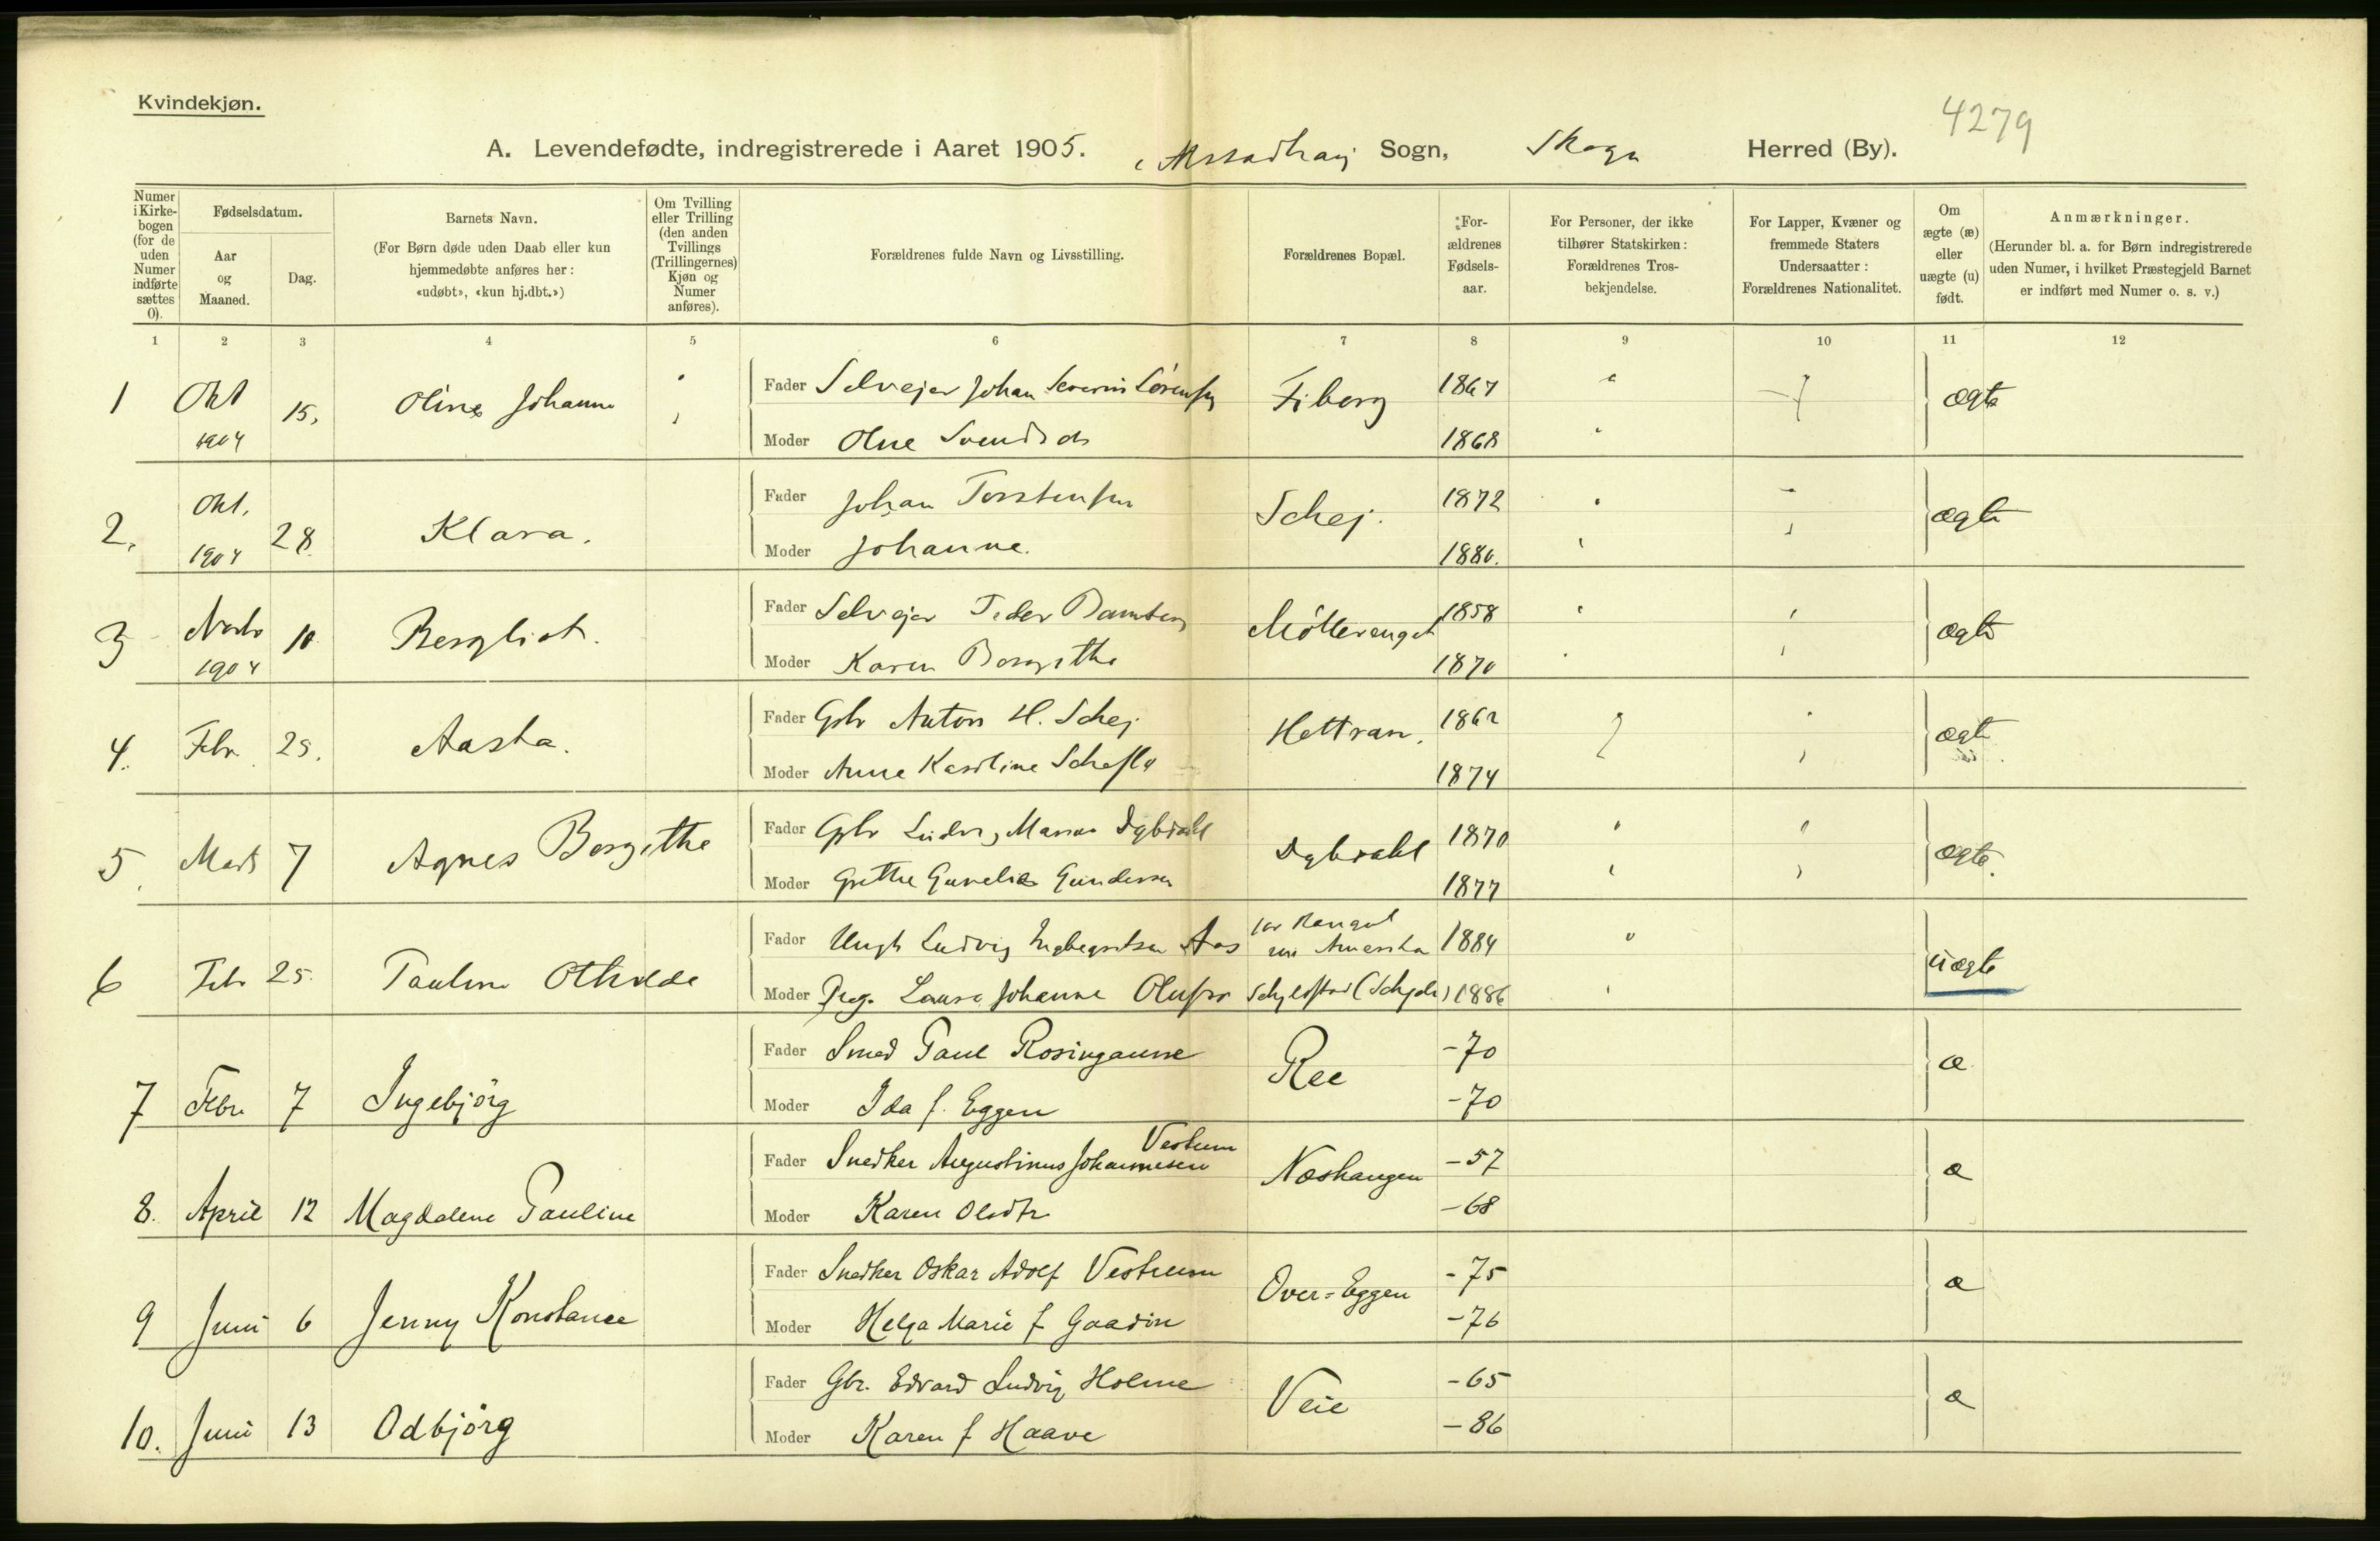 Kvindekjøn.
4279
A. Levendefødte, indregistrerede i Aaret 1905. Alstadhaug Sogn, Skogn Herred (By).
Numer i Kirkebogen (for de uden Numer indførte sættes 0).
Fødselsdatum.
Aar og Maaned.
Dag.
Barnets Navn.
(For Børn døde uden Daab eller kun hjemmedøbte anføres her: «udøbt», «kun hj.dbt.»)
Om Tvilling eller Trilling (den anden Tvillings (Trillingernes) Kjøn og Numer anføres).
Forældrenes fulde Navn og Livsstilling.
Forældrenes Bopæl.
Forældrenes Fødselsaar.
For Personer, der ikke tilhører Statskirken: Forældrenes Trosbekjendelse.
For Lapper, Kvæner og fremmede Staters Undersaatter: Forældrenes Nationalitet.
Om ægte (æ) eller uægte (u) født.
Anmærkninger.
(Herunder bl. a. for Børn indregistrerede uden Numer, i hvilket Præstegjeld Barnet er indført med Numer o. s. v.)
1 2 3 4 5 6 7 8 9 10 11 12
1 Okt 1904 15, Oline Johanne
Fader Selvejer Johan Severin Sørensen Fiborg 1867 ægte
Moder Oline 1868
2. Okt. 1904 28. Klara.
Fader Johan Torstensen Schej. 1872 ægte
Moder Johanne. 1880.
3 Novbr 1904 10 Bergliot.
Fader Selvejer Peder Møllerenget 1858 ægte
Moder Karen Bergithe 1870
4. Febr. 25. Aasta.
Fader Gbr Anton H. Schej Hettran. 1862 ægte
Moder Anne Karoline 1874
5. Marts 7 Agnes Bergithe
Fader Gbr Ludvig Dybdahl Dybdahl 1870 ægte.
Moder Grethe Gunelie Gundersen 1877
6 Febr 25. Pauline Othilde
Fader Ungk Ludvig Ingebrigtsen Aas Amerika 1884 uægte
Moder Pige Laura Johanne 1886
7 Febr. 7 Ingebjörg
Fader Smed Paul Rosingaune Ree -70 æ
Moder Ida f. Eggen -70
8. April 12 Magdalene Pauline
Fader Snedker Augustinus Johannesen Vestrum Næshaugen -57 æ
Moder Karen Olsdtr -68
9 Juni 6 Jenny Konstance
Fader Snedker Oskar Adolf Vestrum Over-Eggen -75 æ
Moder Helga Marie f -76
10. Juni 13 Odbjörg
Fader Gbr. Edvard Ludvig Holme Veie -65 æ
Moder Karen f Haave -86